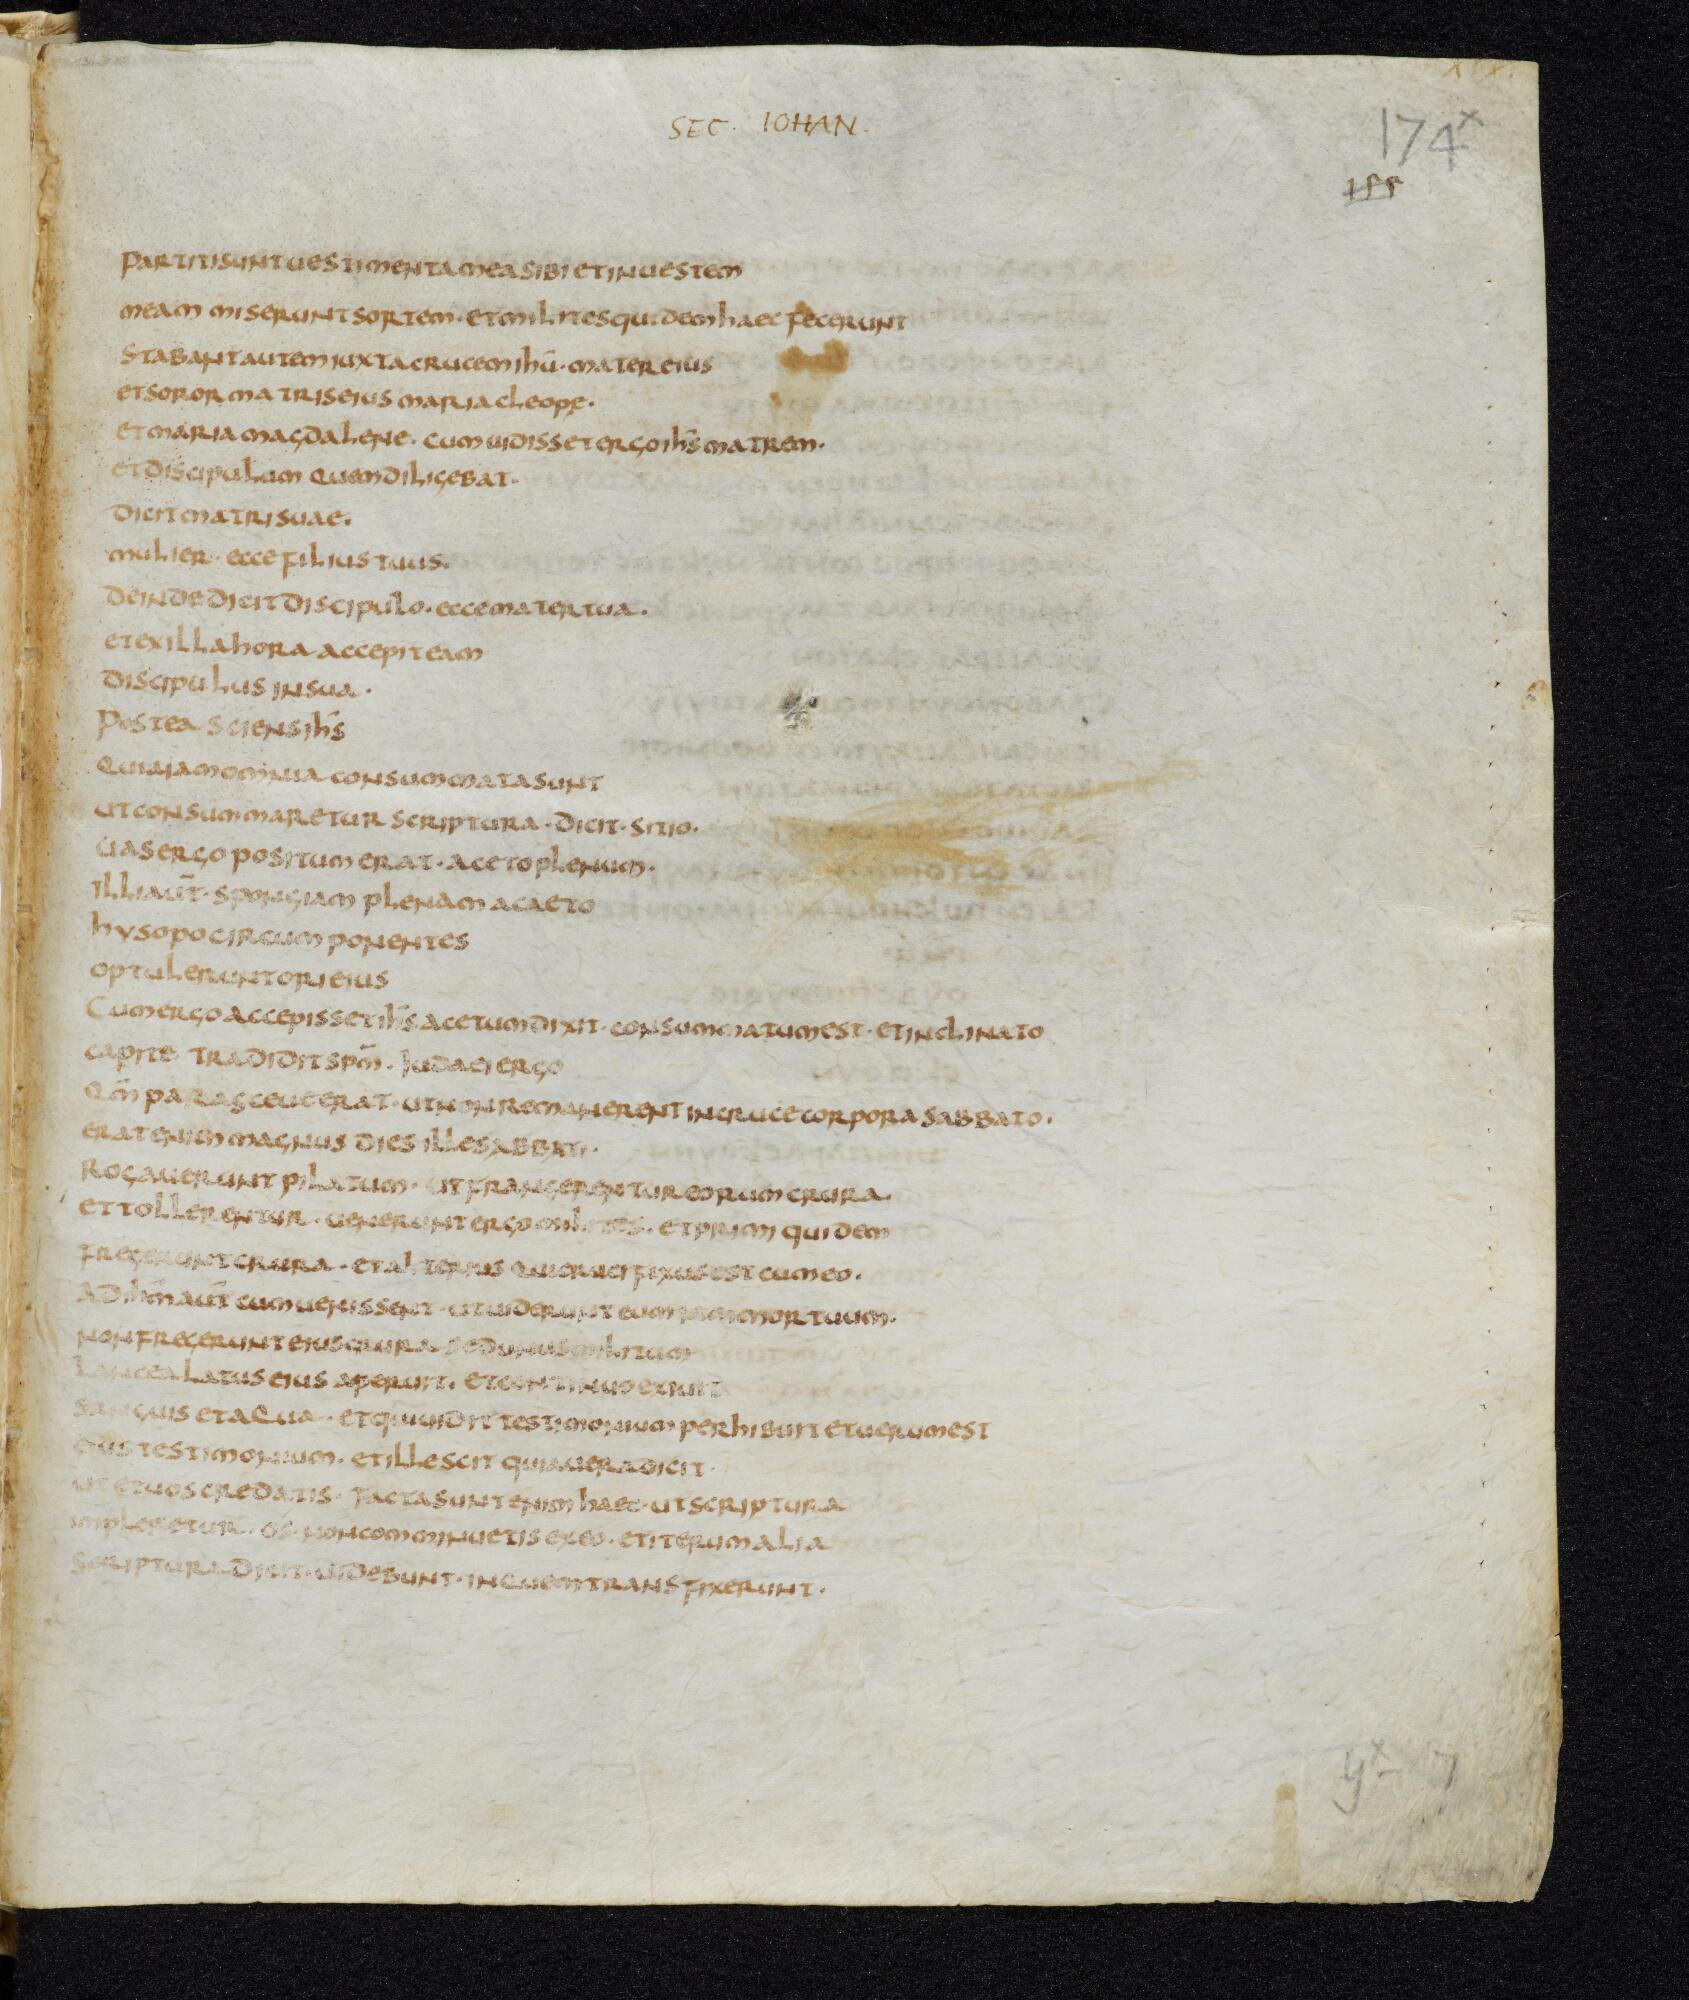 XIX.
SEC. IOHAN.
174x
155
partiti sunt uestimenta mea sibi et in uestem
meam miserunt sortem · et milites quidem haec fecerunt
Stabant autem iuxta crucem ihū · mater eius
et soror matris eius maria cleope ·
et maria magdalene · cum uidisset ergo ihs̄ matrem ·
et discipulum quem diligebat ·
dicit matri suae ·
mulier · ecce filius tuus ·
deinde dicit discipulo · ecce mater tua ·
et ex illa hora accepit eam
discipulus in sua ·
Postea sciens ihs̄
quia iam omnia consummata sunt
ut consummaretur scriptura · dicit · sitio ·
Uas ergo positum erat · aceto plenum ·
Illi aut̄ · spongiam plenam acaeto
hysopo circumponentes
optulerunt ori eius
Cum ergo accepisset ihs̄ acetum dixit · consummatum est · et inclinato
capite tradidit spm̄ · Iudaei ergo
qm̄ parasceue erat · ut non remanerent in cruce corpora sabbato ·
erat enim magnus dies ille sabbati ·
Rogauerunt pilatum · ut frangerentur eorum crura ·
et tollerentur · uenerunt ergo milites · et primi quidem
fregerunt crura · et alterius qui crucifixus est cum eo ·
Ad ihm̄ aut̄ cum uenissent · ut uiderunt eum iam mortuum ·
non fregerunt eius crura · sed unus militum
lancea latus eius aperuit · et continuo exiuit
sanguis et aqua · et qui uidit testimonium perhibuit et uerum est
eius testimonium · et ille scit quia uera dicit ·
ut et uos credatis · facta sunt enim haec · ut scriptura
impleretur · os · non comminuetis ex eo · et iterum alia
scriptura dicit · uidebunt · in quem transfixerunt ·